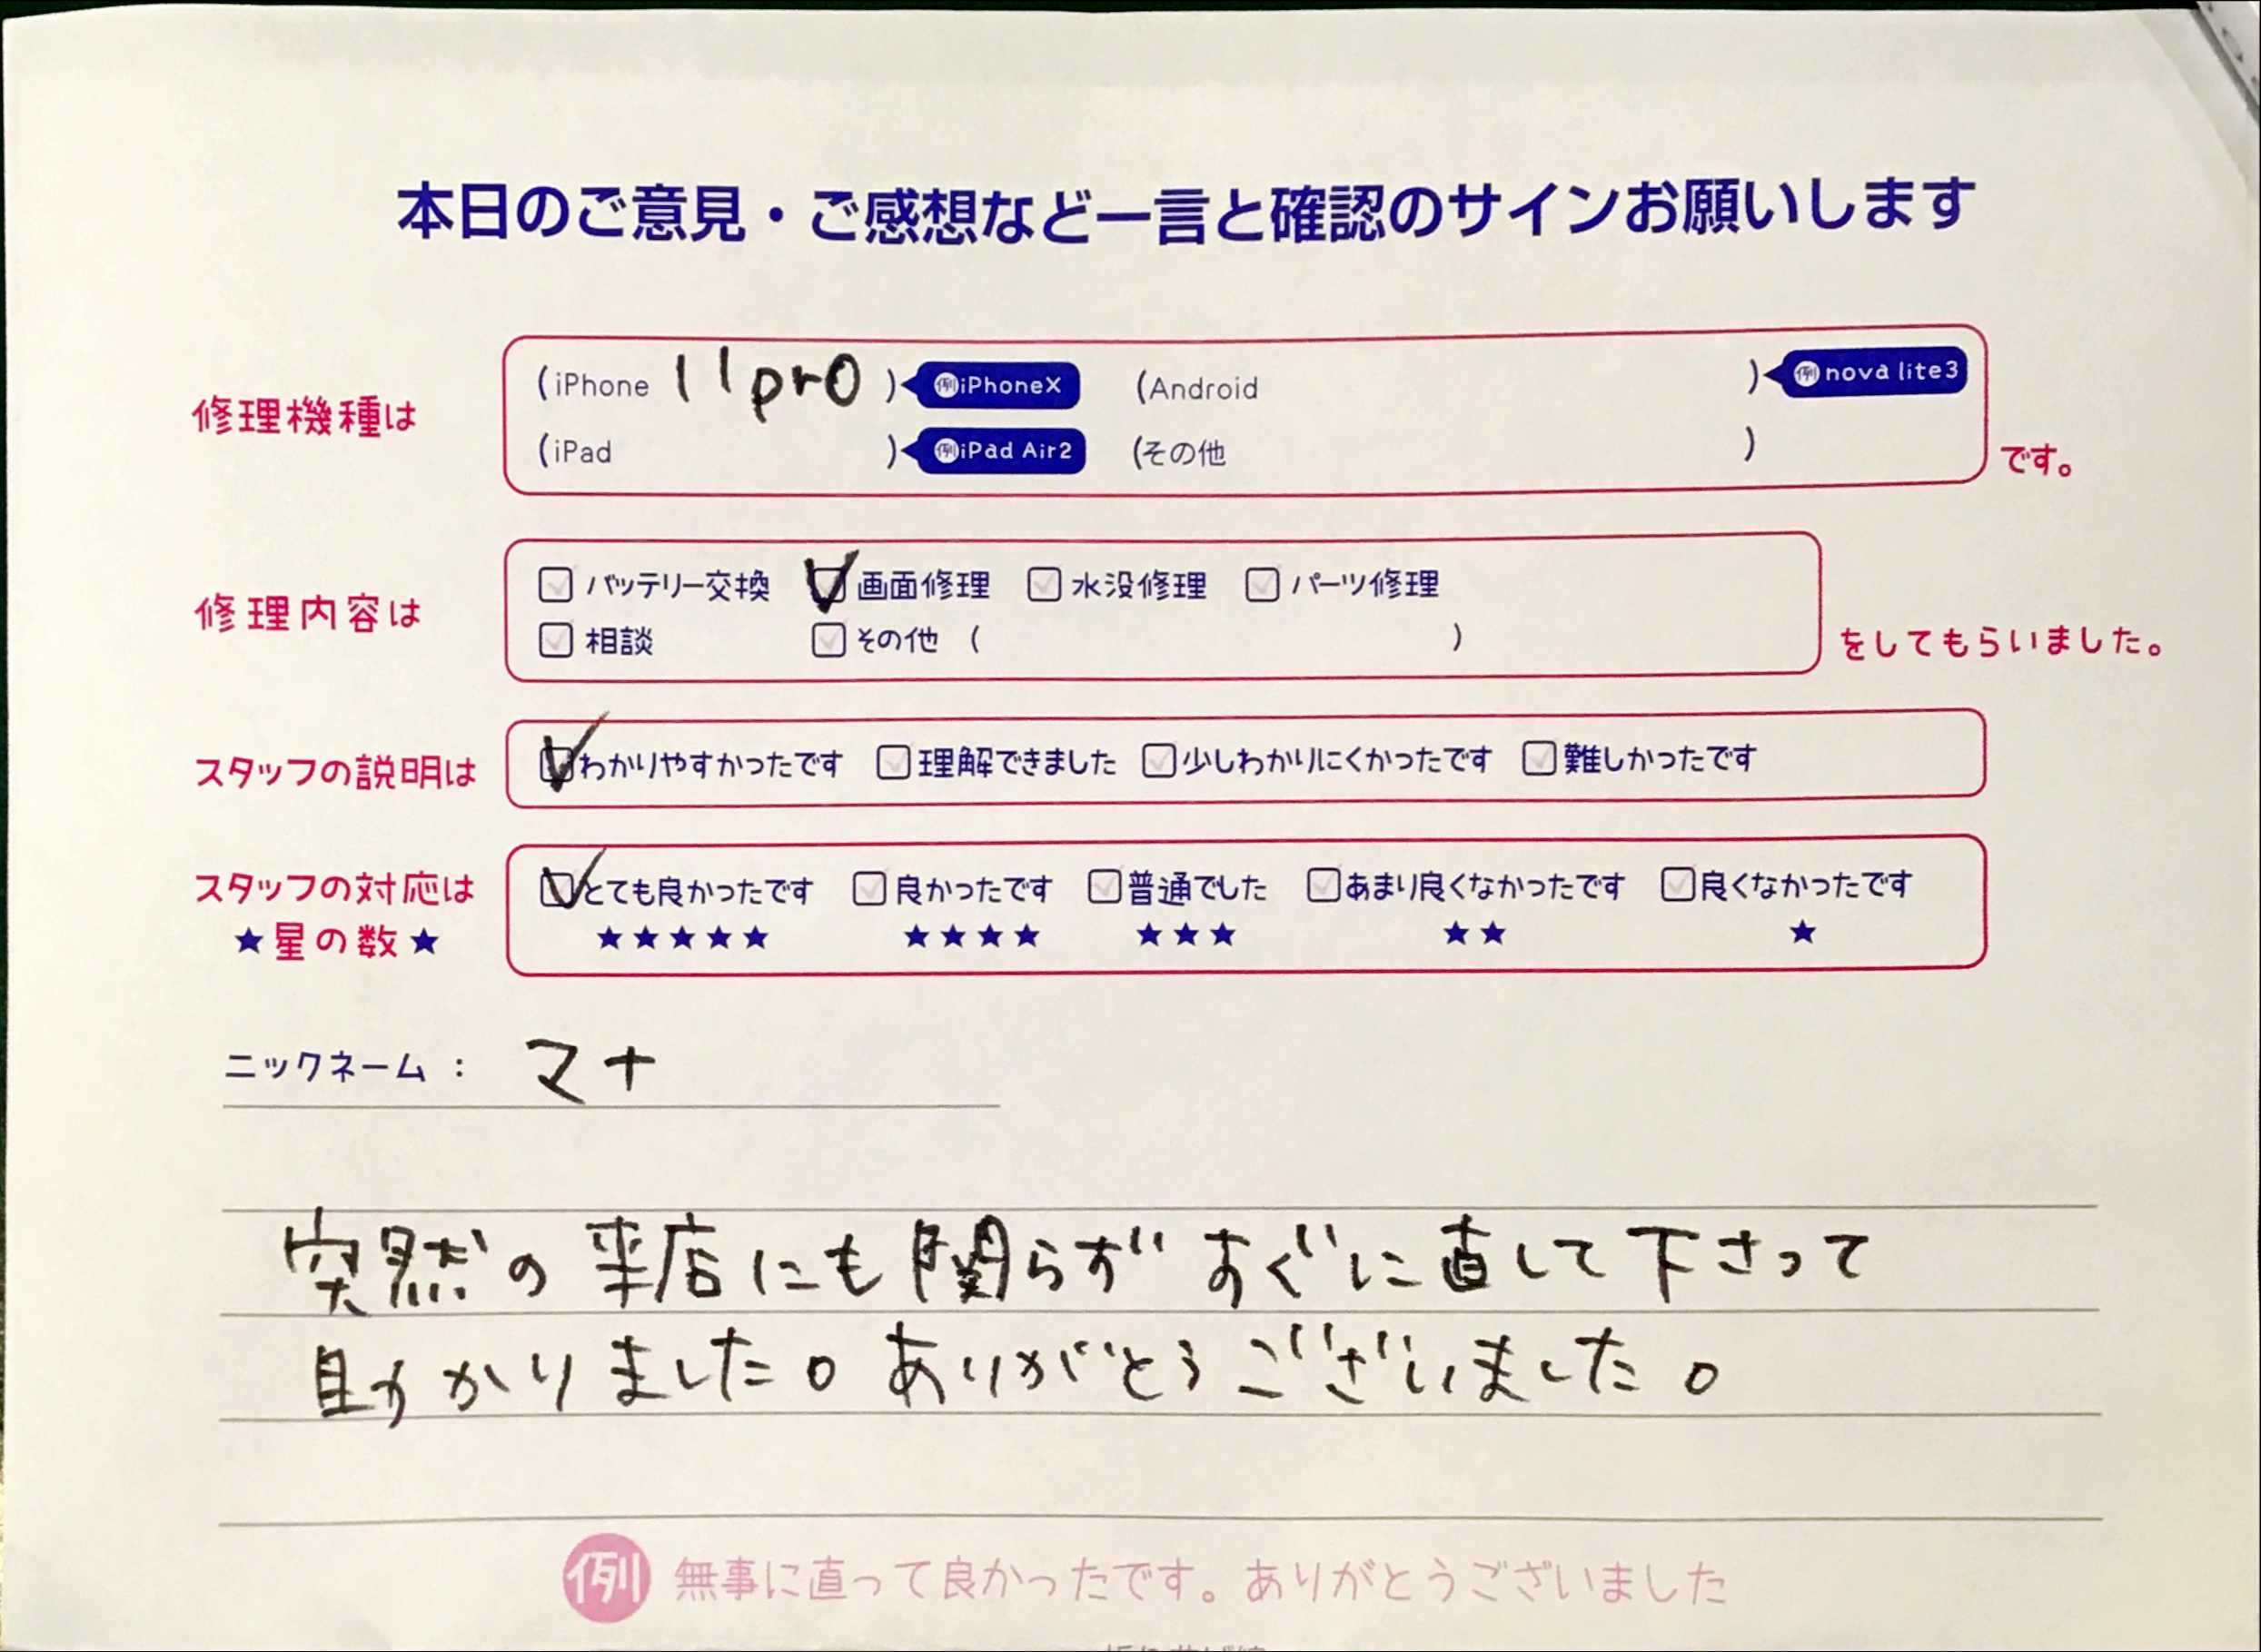 本日のご意見・ご感想など一言と確認のサインお願いします
修理機種は
(iPhone 11pro ) 例iPhoneX (Android ) 例nova lite3
(iPad ) 例iPad Air2 (その他 ) です。
修理内容は
バッテリー交換 画面修理 水没修理 パーツ修理
相談 その他 ( ) をしてもらいました。
スタッフの説明は わかりやすかったです 理解できました 少しわかりにくかったです 難しかったです
スタッフの対応は とても良かったです 良かったです 普通でした あまり良くなかったです 良くなかったです
★星の数★ ★★★★★ ★★★★ ★★★ ★★ ★
ニックネーム : マナ
突然の来店にも関らず すぐに直して下さって
助かりました。ありがとうございました。
例 無事に直って良かったです。ありがとうございました